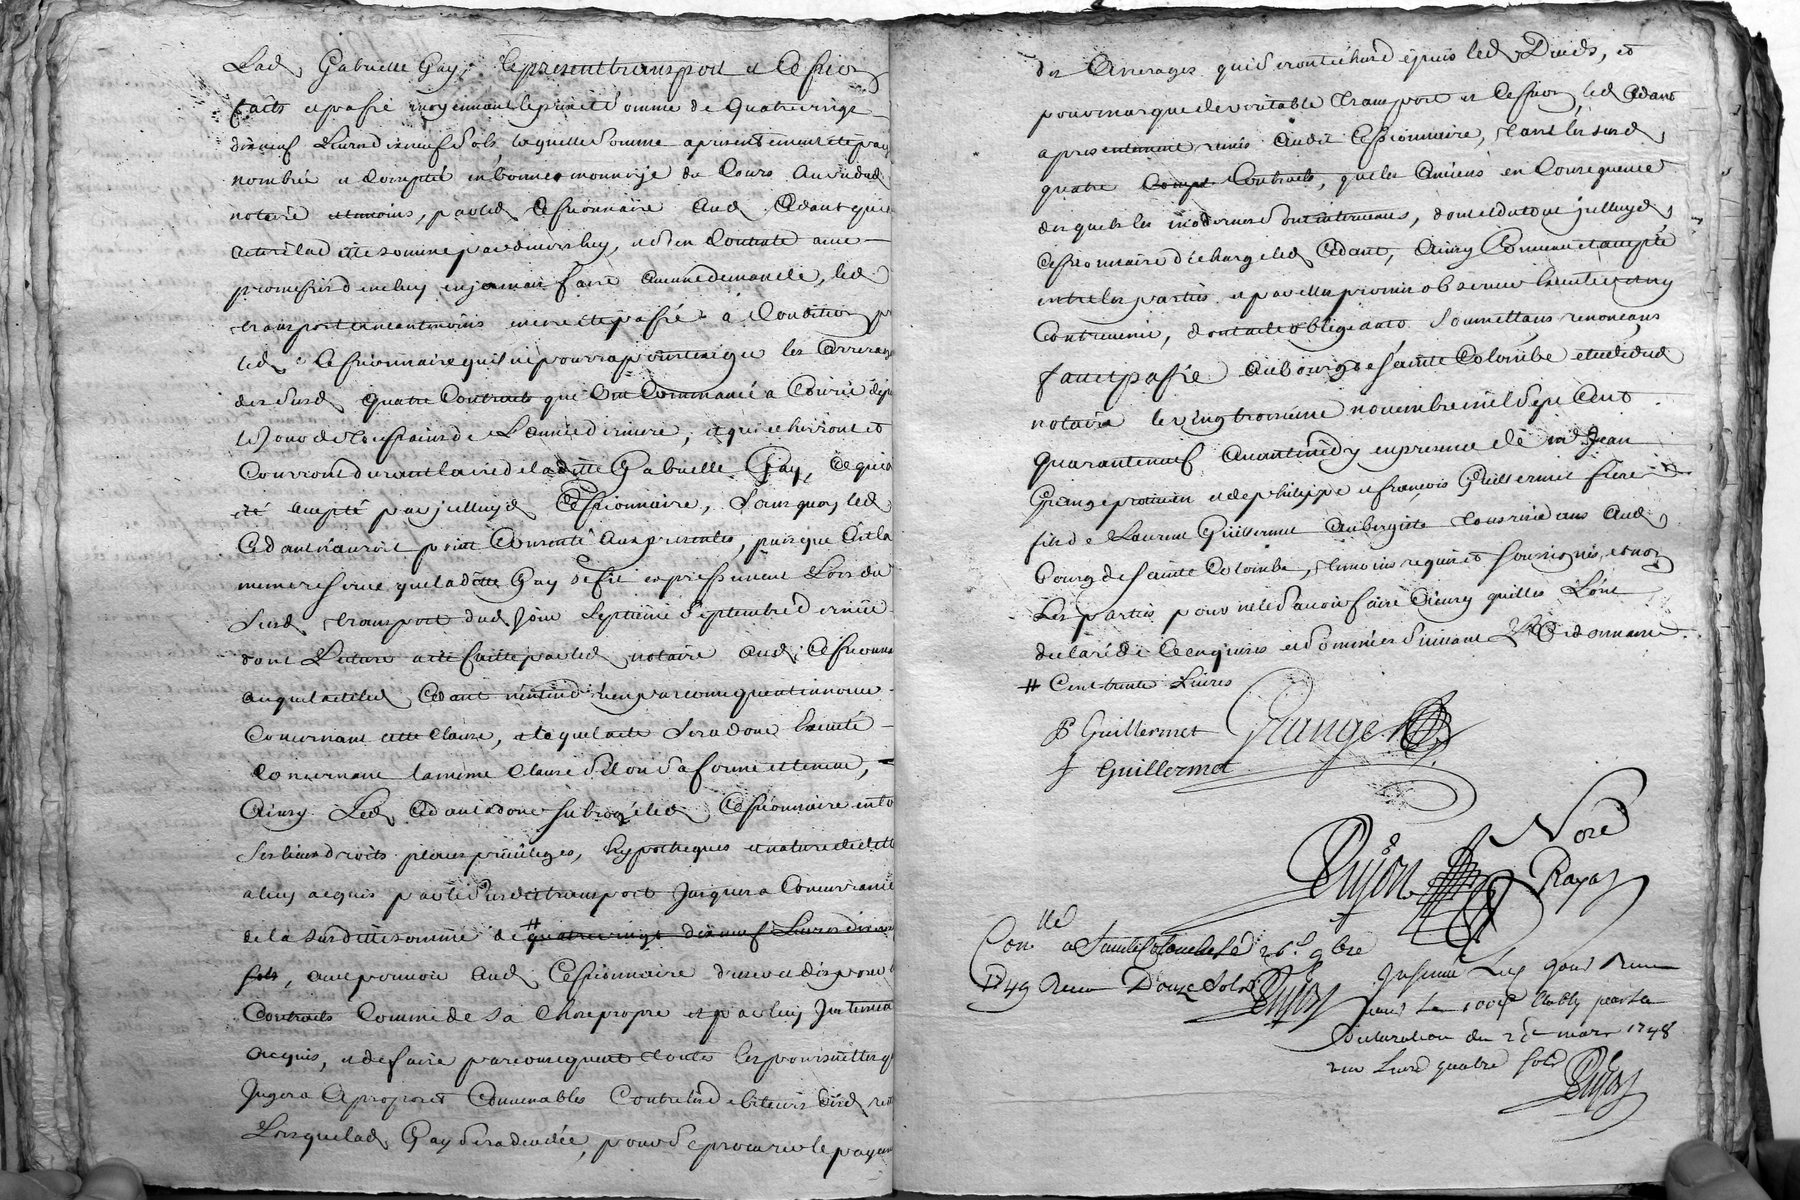 Lad. Gabrielle Gay; le present transport et Cession
faits et passé moyennant le prix et somme de quatrevingt
dixneuf Livres dixneuf sols, laquelle somme a presentement eté payé
nombrée et Comptée en bonne monnoye du Cours au vû dud.
notaire et temoins, par led. Cessionnaire aud. Cedant qui a
retiré lad.itte somme par devers luy, et s'en Contente avec
promesse d'en luy en jamais faire aucune demande, led.
transport a neantmoins encore eté passé à Condition p
led. Cessionnaire qu'il ne pourra point exiger les Arrerages
des susd. quatre Contrats qui Ont Commancé a Courir depuis
le jour de Toussaints de L'année derniere, et qui écherront et
Courront durant la vie de la ditte Gabrielle Gay, ce qui a
eté accepté par jcelluy d. Cessionnaire, sans quoy led.
Cedant n'auroit point Consenti aux presentes, puisque C'est la
meme reserve que la ditte Gay se fit expressement Lors du
susd. transport dud. jour septieme septembre dernier
dont Lecture a eté faitte par led. notaire aud. Cessionna
auquel acte led. Cedant n'entend rien par consequent innover
Concernant cette Clause, et lequel acte sera donc executé
Concernant la meme Clause selon sa forme et teneur,
Ainsy Led. Cedant a donc subrogé led. Cessionnaire en to
ses lieux droits places privileges, hypotheques et nature de dette
a luy acquis par le susdit transport jusques a Concurrance
de la susditte somme de # quatre vingt dixneuf Livres dixneuf
sols, avec pouvoir aud. Cessionnaire d'user et disposer
Contrats Comme de sa Chose propre et par luy justement
acquis, et de faire par consequent toutes les poursuittes q
jugera Apropos et Convenables Contre les debiteurs
Lorsque lad. Gay sera decedée, pour se procurer le payem
des Arrerages qui seront echus depuis led. Decès, et
pour marque de veritable transport et Cession, led. Cedant
a presentement remis audit Cessionnaire, tant les susd.
quatre Compt Contrats, que les Anciens en Consequence
desquels les modernes sont intervenus, dont du tout jcelluy d.
Cessionnaire décharge led. Cedant, Ainsy Convenu et accepté
entre les parties, et par elles promis observer
Contrevenir, dont acte obligeants soumettans renonçans
fait et passé au bourg de sainte Colombe etude dud.
notaire le vingt troisieme novembre mil sept Cent
quarante neuf avant midy en presence de m.e Jean
Grange praticien et de philippe et françois Guillermet frere
fils de Laurent Guillermet Aubergiste tous residans aud.
bourg de sainte Colombe, temoins requis et soussignés, et non
Les parties pour ne le sçavoir faire Ainsy qu'elles L'ont
declaré de Ce enquises et sommées suivant L'Ordonnance.
# Cent trente Livres
P Guillermet Grange
f Guillermet
Dujon Nore
Rayal
Con.lle a Sainte Colombe le 26.e 9bre
1749 Receu Douze Sols Dujon
tarif Le 100.e Etably par la
Declaration du 20 mars 1748
Livre quatre sols
Dujon